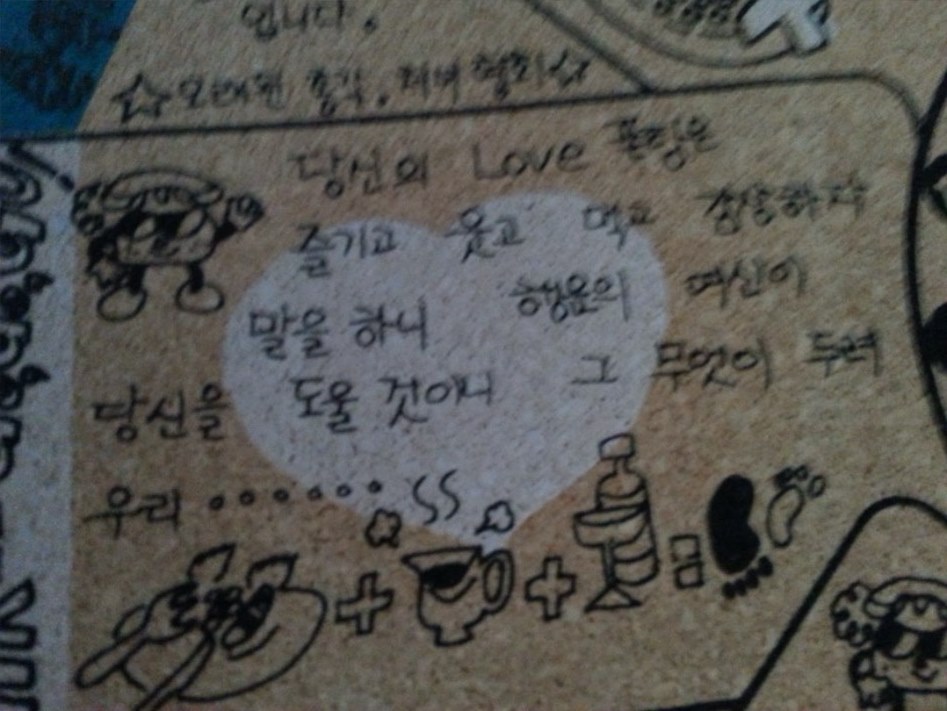 입니다.
☆오래된 총각, 처녀 협회☆
당신의 Love 풀링은
즐기고 웃고 먹고 상상하자
말을 하니 행운의 여신이
당신을 도울 것이니 그 무엇이 두려
우리 。。。。。。